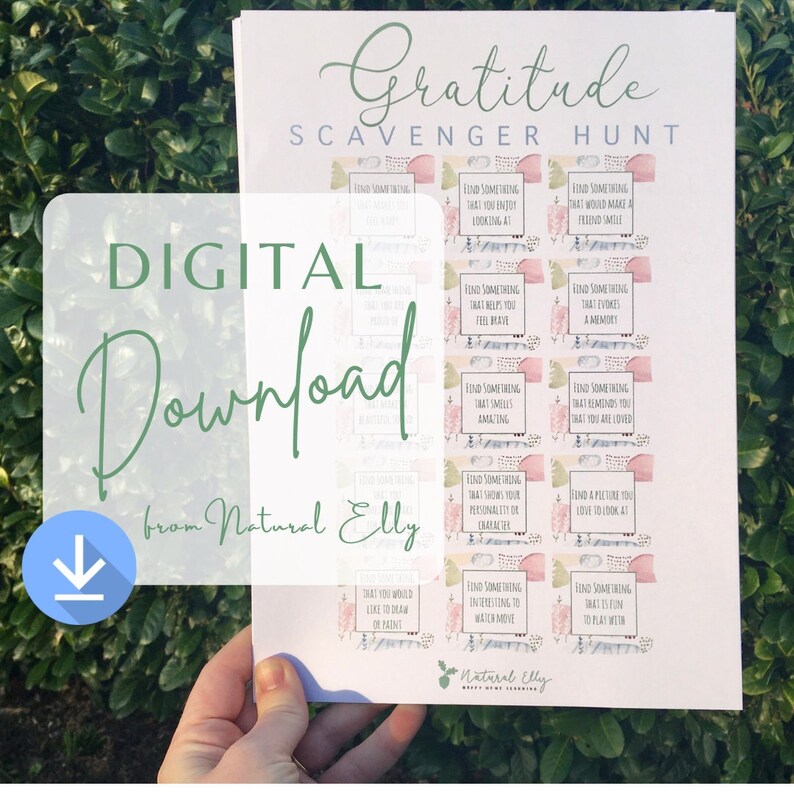 Gratitude
SCAVENGER HUNT
FIND SOMETHING
THAT MAKES YOU
FEEL HAPPY
FIND SOMETHING
THAT YOU ENJOY
LOOKING AT
FIND SOMETHING
THAT WOULD MAKE A
FRIEND SMILE
FIND SOMETHING
THAT YOU ARE
PROUD OF
FIND SOMETHING
THAT HELPS YOU
FEEL BRAVE
FIND SOMETHING
THAT EVOKES
A MEMORY
BEAUTIFUL
FIND SOMETHING
THAT SMELLS
AMAZING
FIND SOMETHING
THAT REMINDS YOU
THAT YOU ARE LOVED
THAT YOU
FIND SOMETHING
THAT SHOWS YOUR
PERSONALITY OR
CHARACTER
FIND A PICTURE YOU
LOVE TO LOOK AT
FIND SOMETHING
THAT YOU WOULD
LIKE TO DRAW
OR PAINT
FIND SOMETHING
INTERESTING TO
WATCH MOVE
FIND SOMETHING
THAT IS FUN
TO PLAY WITH
Natural Elly
HAPPY HOME LEARNING
DIGITAL
Download
from Natural Elly